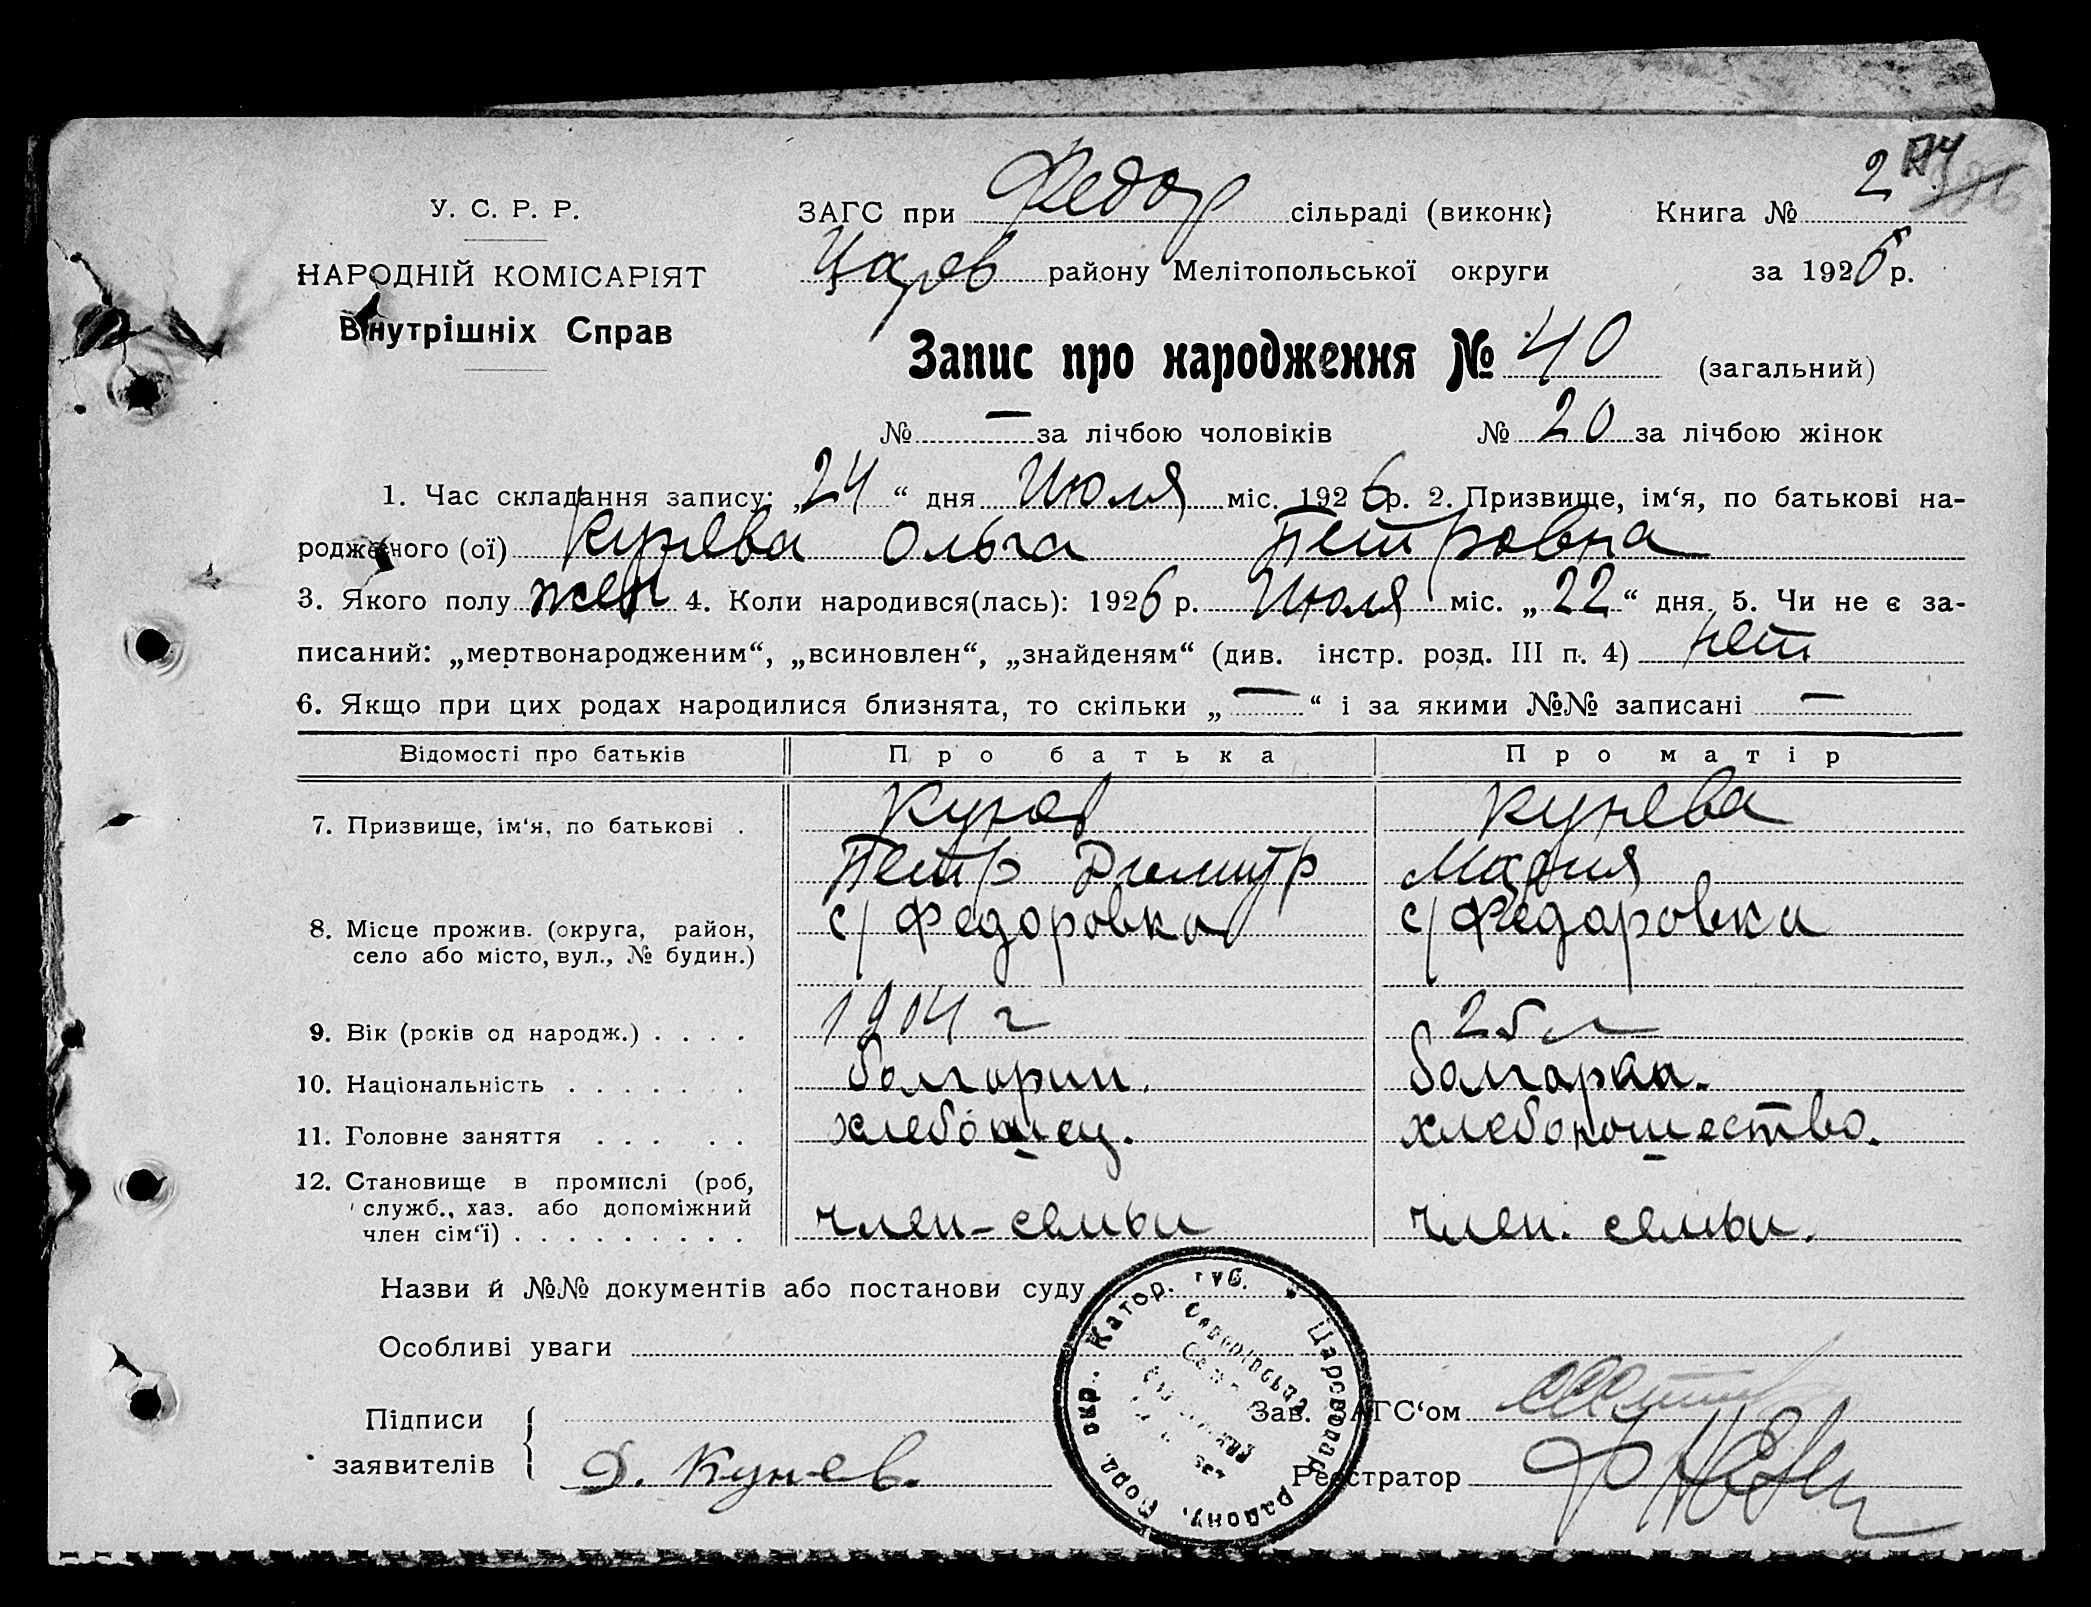 2
У. С. Р. Р.
ЗАГС при Федор сільраді (виконк)
Книга №
Царев району Мелітопольської округи
за 1926 р.
НАРОДНІЙ КОМІСАРІЯТ
Внутрішніх Справ
Запис про народження № 40 (загальний)
№ — за лічбою чоловіків № 20 за лічбою жінок
1. Час складання запису: „24“ дня Июля міс. 1926 р. 2. Призвище, ім‘я, по батькові на-
родженого (ої) Кунева Ольга Петровна
3. Якого полу жен 4. Коли народився(лась): 1926 р. Июля міс. „22“ дня. 5. Чи не є за-
писаний: „мертвонародженим“, „всиновлен“, „знайденям“ (див. інстр. розд. III п. 4) нет
6. Якщо при цих родах народилися близнята, то скільки „—“ і за якими №№ записані —
Відомості про батьків Про батька Про матір
7. Призвище, ім‘я, по батькові . Кунев Кунева
Петр Димитр Мария
8. Місце прожив. (округа, район, с/ Федоровка с/ Федоровка
село або місто, вул., № будин.)
9. Вік (років од народж.) . . . . 1904 г 25 л
10. Національність . . . . . . . болгарин. болгарка.
11. Головне заняття . . . . . хлебопашец. хлебопашество.
12. Становище в промислі (роб,
служб., хаз. або допоміжний
член сім‘ї) . . . . . . . . . член-семьи член. семьи.
Назви й №№ документів або постанови суду
Особливі уваги
Катор. губ. Цареводар. району, Берд. окр.
Підписи
Зав. ЗАГС‘ом
заявителів Д. Кунев.
Реєстратор